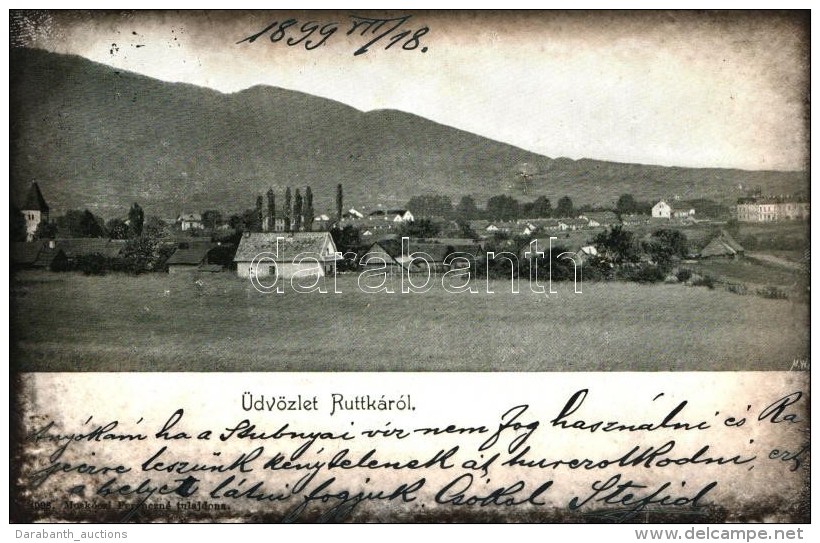 1899 VII/18.
darabanth
M.W.
Üdvözlet Ruttkáról.
Anyókám ha a Stubnyai víz nem fog használni és Ra
jeczre leszünk kénytelenek át hurczolkodni, ezt
a helyet látni fogjuk. Csókol Stefid
Ferenczné tulajdona.
Darabanth_auctions
delcampe.net